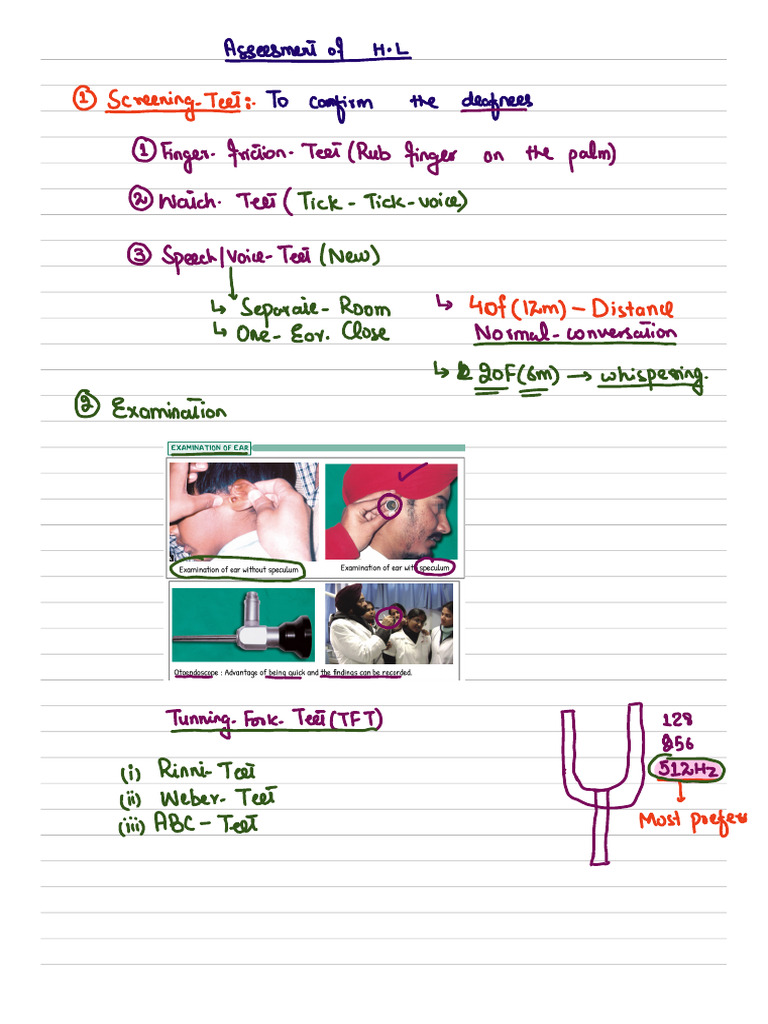 Assessment of H.L
① Screening-Test:- To confirm the deafness
① Finger-friction-Test (Rub finger on the palm)
② Watch-Test (Tick-Tick-voice)
③ Speech/Voice-Test (New)
↳ Separate-Room
↳ One-Ear. Close
↳ 40f (12m) - Distance
Normal-conversation
↳ 20F (6m) → whispering.
② Examination
EXAMINATION OF EAR
Examination of ear without speculum
Examination of ear with speculum
Otoendoscope : Advantage of being quick and the findings can be recorded.
Tunning-Fork-Test (TFT)
(i) Rinni-Test
(ii) Weber-Test
(iii) ABC-Test
128
256
512Hz
Most prefers